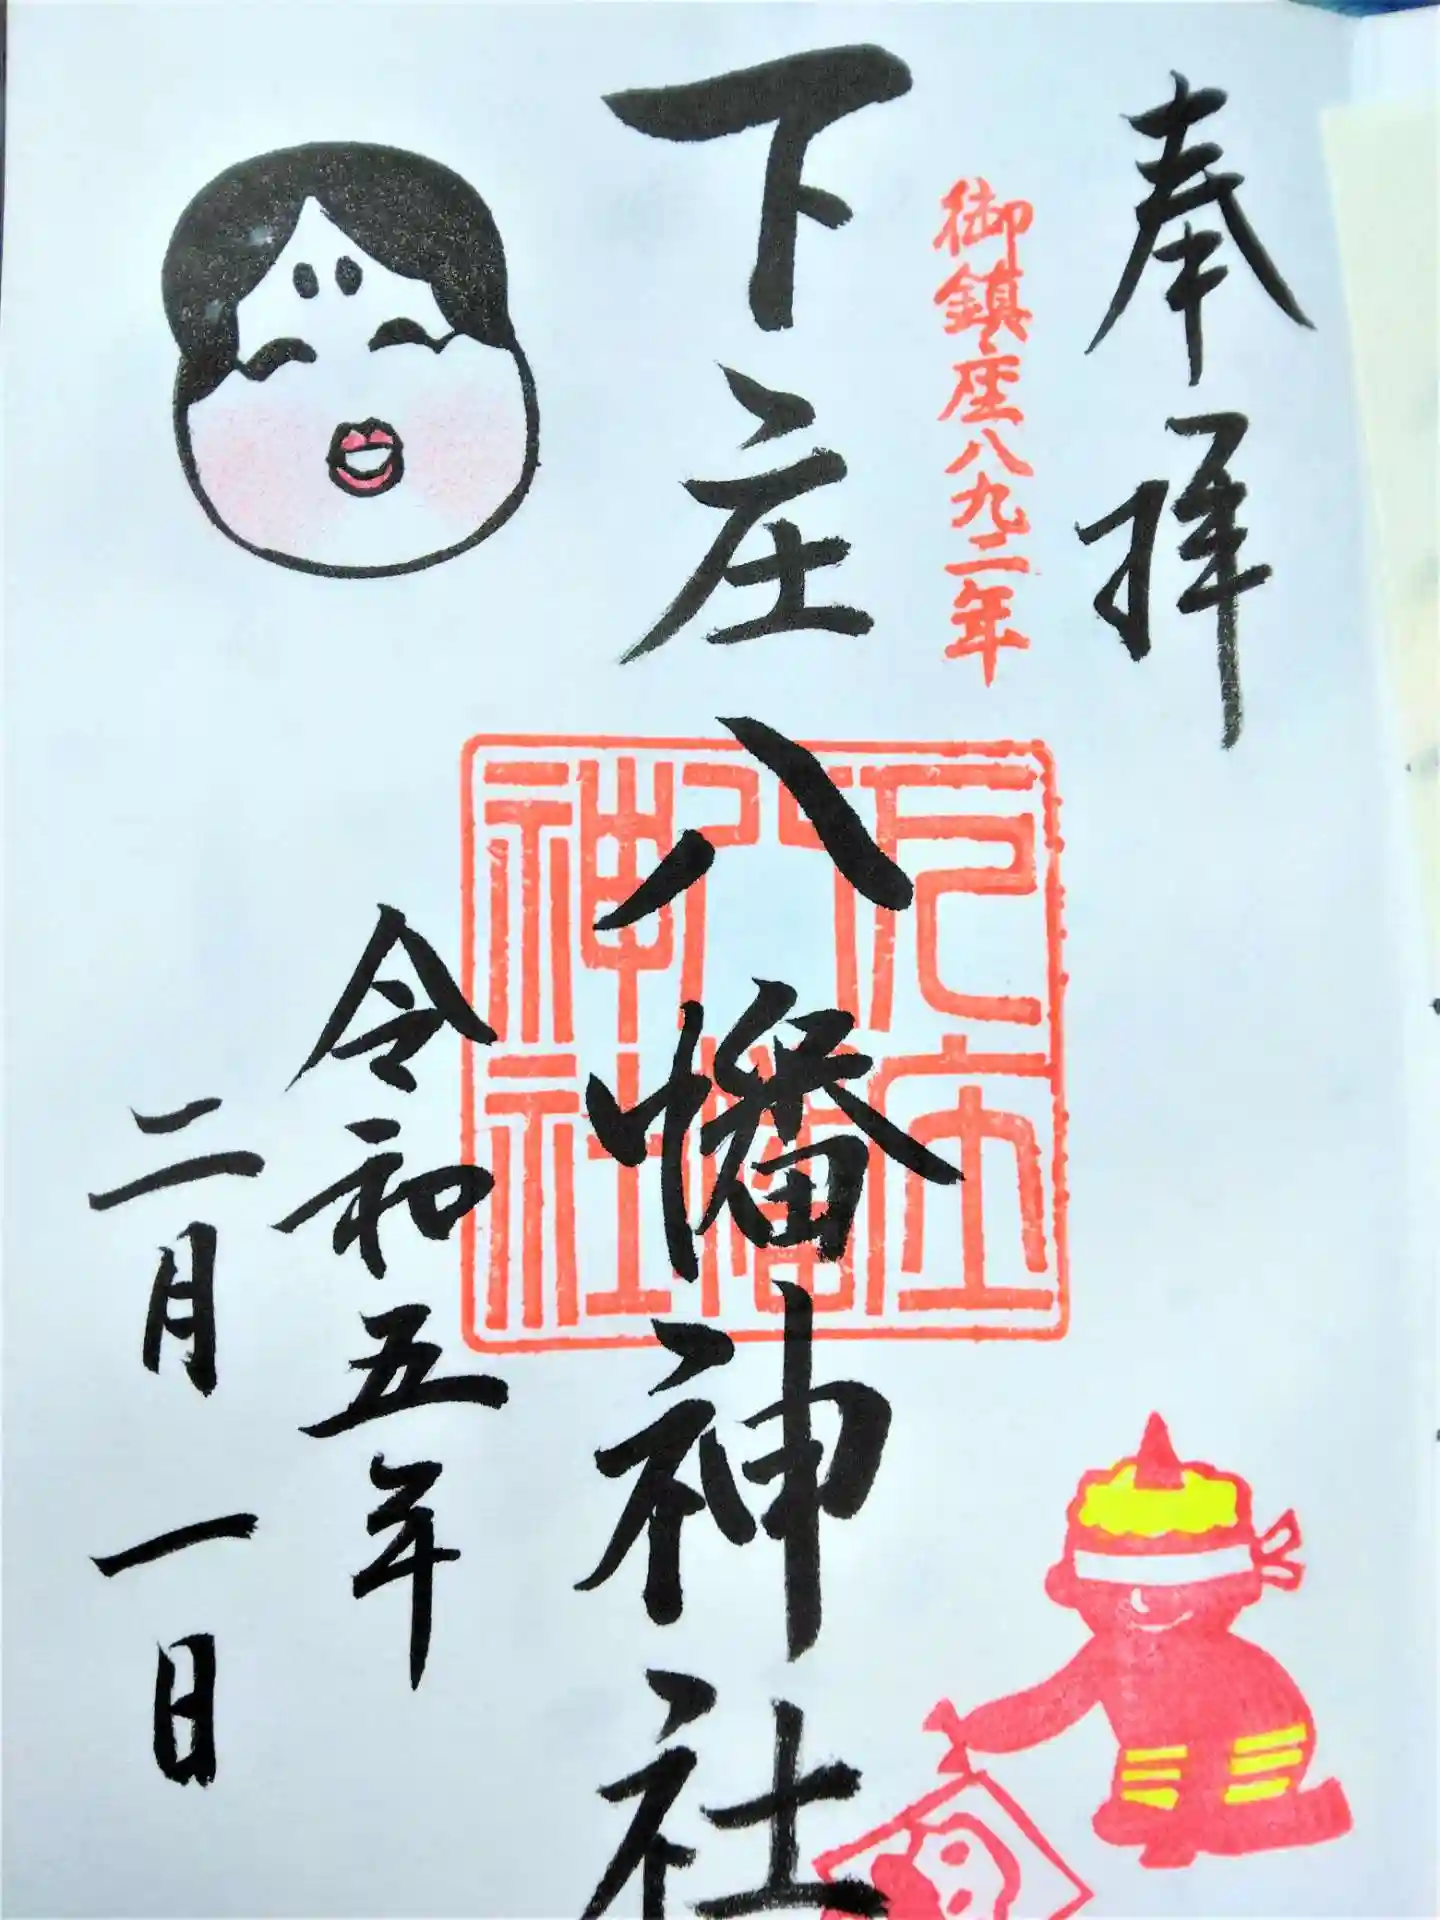 奉拝
御鎮座八九二年
下庄八幡神社
下庄
八幡
神社
令和五年
二月一日